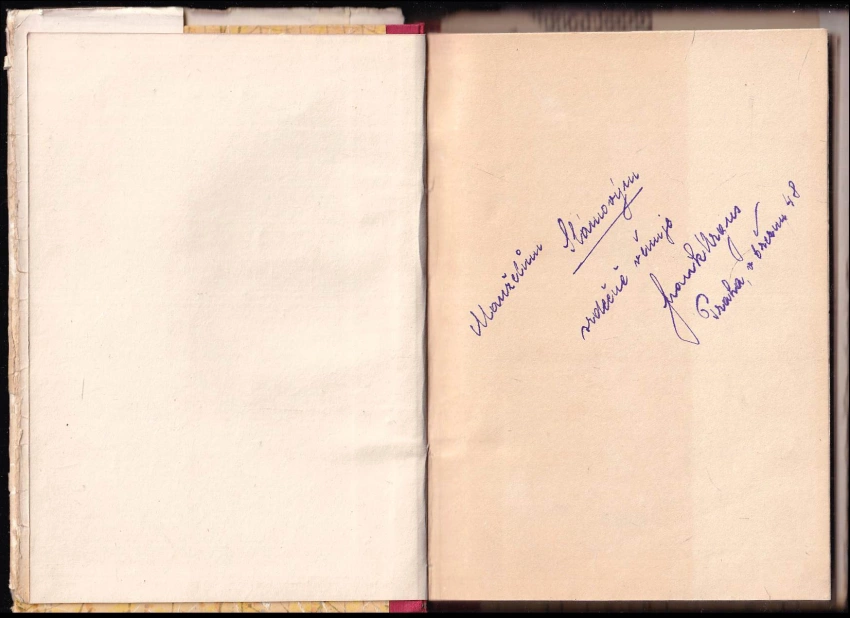 Manželům Slámovým
srdečně věnuje
Frank Wenig
Praha, v březnu 48